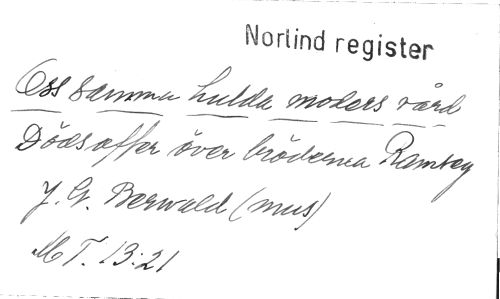 Norlind register
Oss samma hulda moders vård
Dödsoffer över bröderna Ramsay
J. G. Berwald (mus)
M T. 13:21